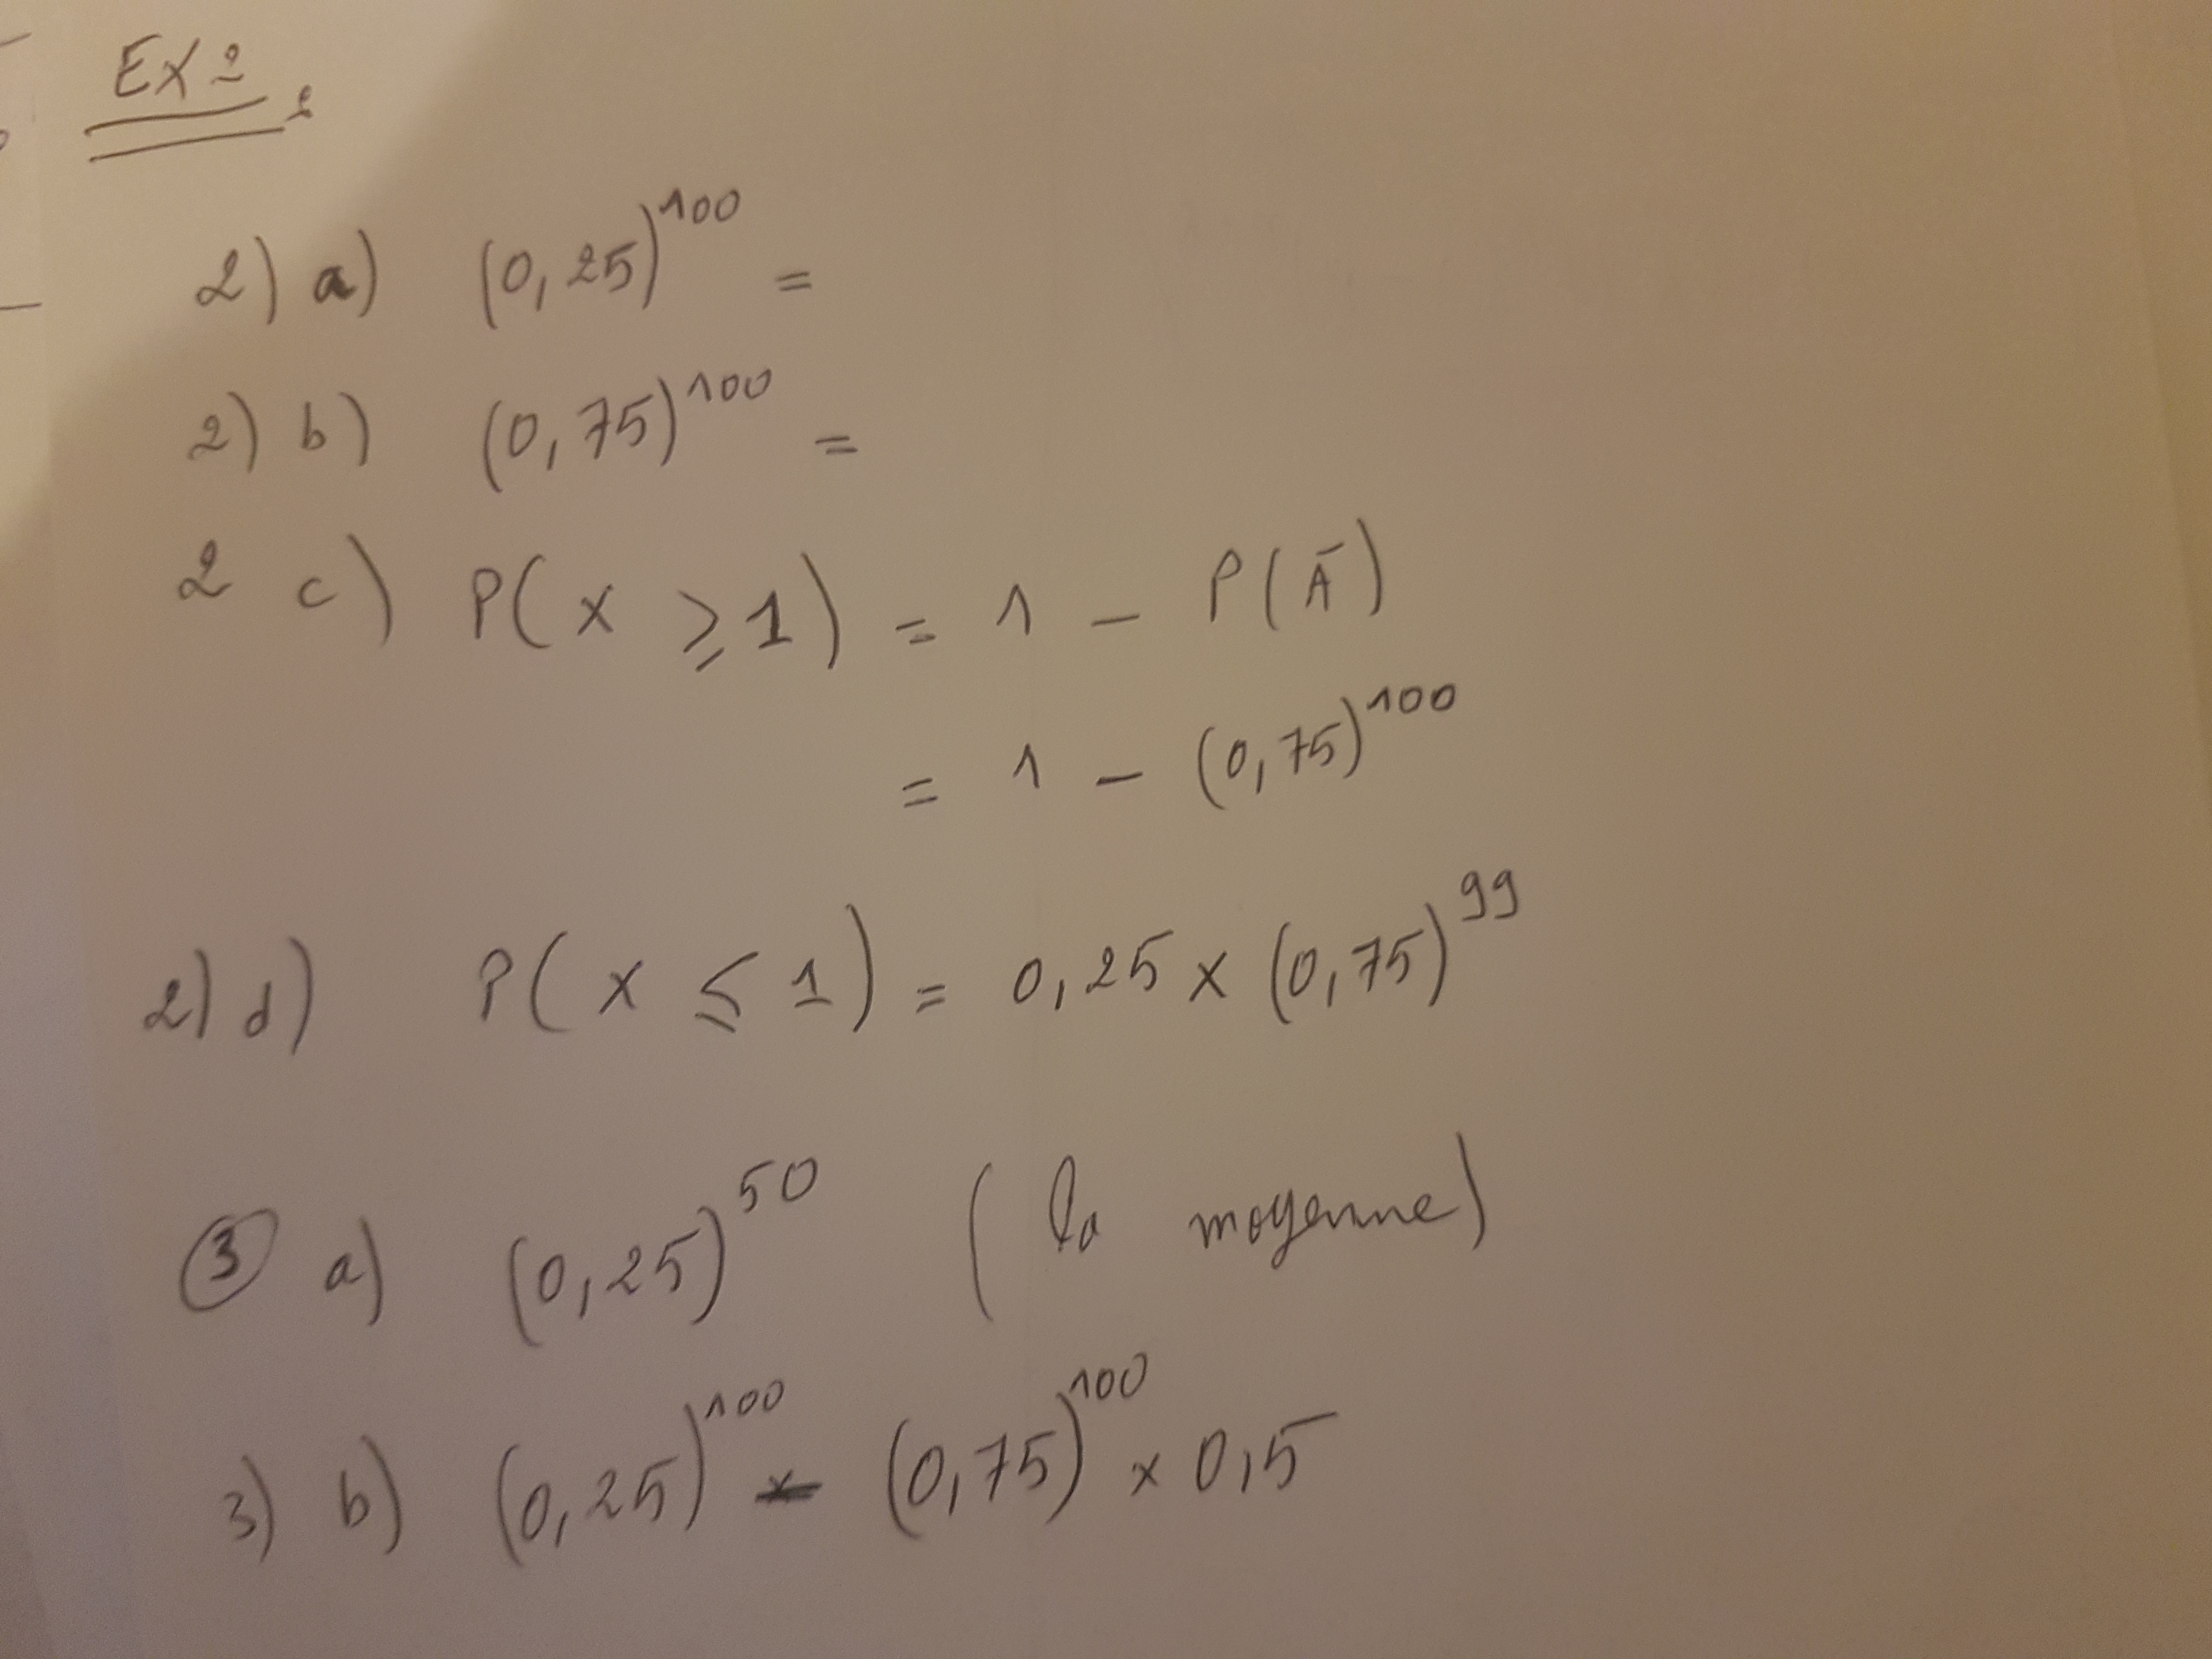 Ex 2
2) a) (0,25)^100 =
2) b) (0,75)^100 =
2 c) P(x ≥ 1) = 1 - P(Ā)
= 1 - (0,75)^100
2) d) P(x ≤ 1) = 0,25 x (0,75)^99
③ a) (0,25)^50 (la moyenne)
3) b) (0,25)^100 * (0,75)^100 x 0,5